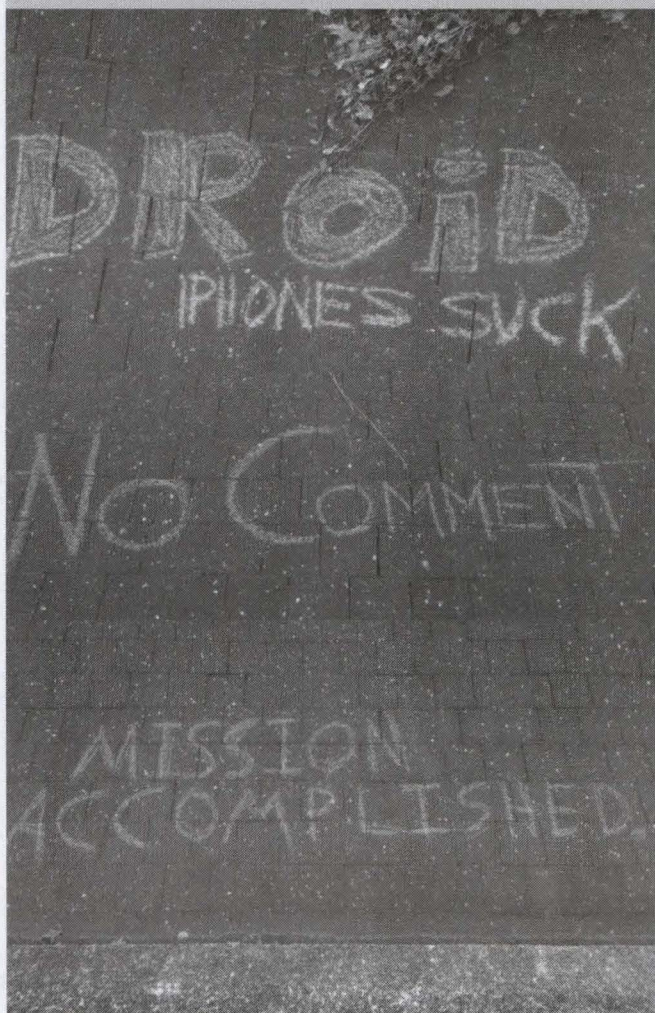 DROiD
IPHONES SUCK
No COMMENT
MISSION
ACCOMPLISHED.